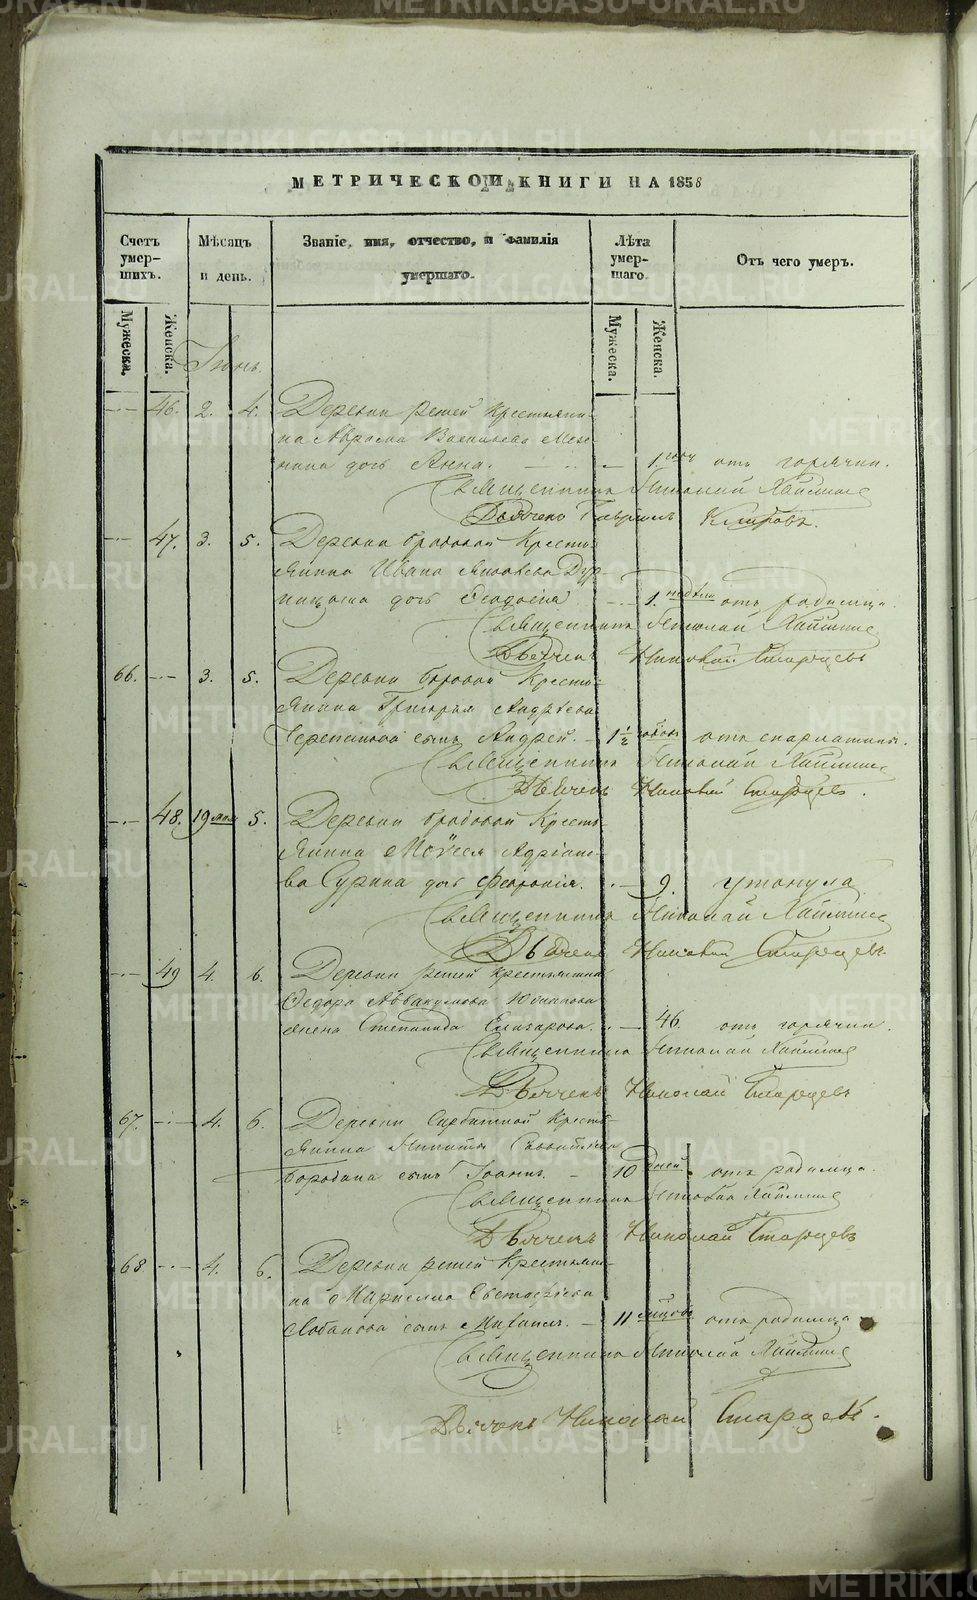 METRIKI.GASO-URAL.RU
МЕТРИЧЕСКОЙ КНИГИ НА 1858
Счетъ умер-шихъ.
Мѣсяцъ и день.
Званіе, имя, отчество, и фамилія умершаго.
Лѣта умер-шаго
Отъ чего умеръ.
Мужеска.
Женска.
Мужеска.
Женска.
Іюнь.
46. 2. 4. Деревни Режей Крестьяни-
на Аврама Васильева
дочь Анна. 1. отъ горячки.
Священникъ Николай
Гавріилъ
47. 3. 5. Деревни бродовой Кресть-
янина Ивана Яковлева
дочь Ѳеодосія 1. недѣли отъ родимца.
Священникъ Николай
Дьячекъ Николай Старцевъ
66. 3. 5. Деревни бродовой Кресть-
янина Григорья Андрѣева
Черепанова сынъ Андрей. 1 1/2 годовъ отъ скарлатины.
Священникъ Николай
Дьячекъ Николай Старцевъ.
48. 19 мая 5. Деревни бродовой Кресть-
янина Моѵсея Адріано-
ва Сурина дочь Февронія. 9. утонула.
Священникъ Николай
Дьячекъ Николай Старцевъ.
49 4. 6. Деревни Режей Крестьянина
Федора Аввакумова
жена Степанида Елизарова. 46. отъ горячки.
Священникъ Николай
Дьячекъ Николай Старцевъ
67. 4. 6. Деревни Кресть-
янина Никиты
бородина сынъ Іоаннъ. 10 дней. отъ родимца.
Священникъ Николай
Дьячекъ Николай Старцевъ
68 4. 6. Деревни Режей Крестьяни-
на Кирилла Евстафіева
Лобанова сынъ Михаилъ. 11 отъ родимца
Священникъ Николай
Дьячекъ Николай Старцевъ.